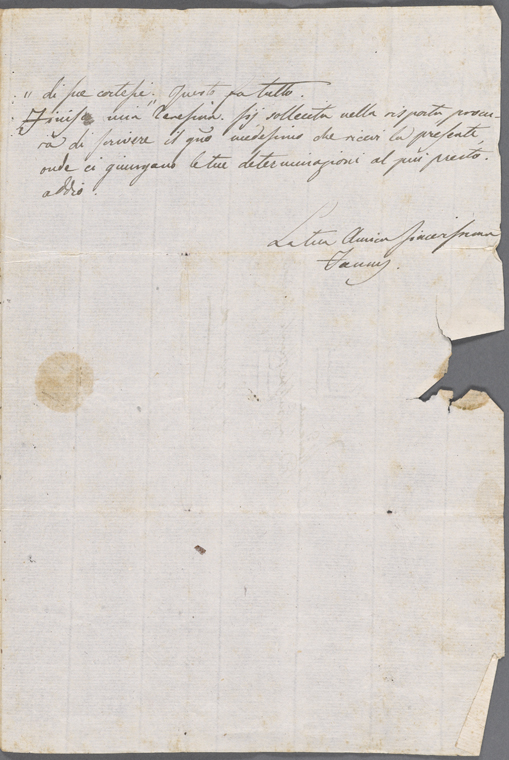 " di sue cortesie". Questo fa tutto.
Finisco mia Teresina. Sij sollecita nella risposta procu-
ra di scrivere il gno medesimo che ricevi la presente,
onde ci giungano le tue determinazioni al più presto.
addio.
La tua Amica sincerissima
Fanny.